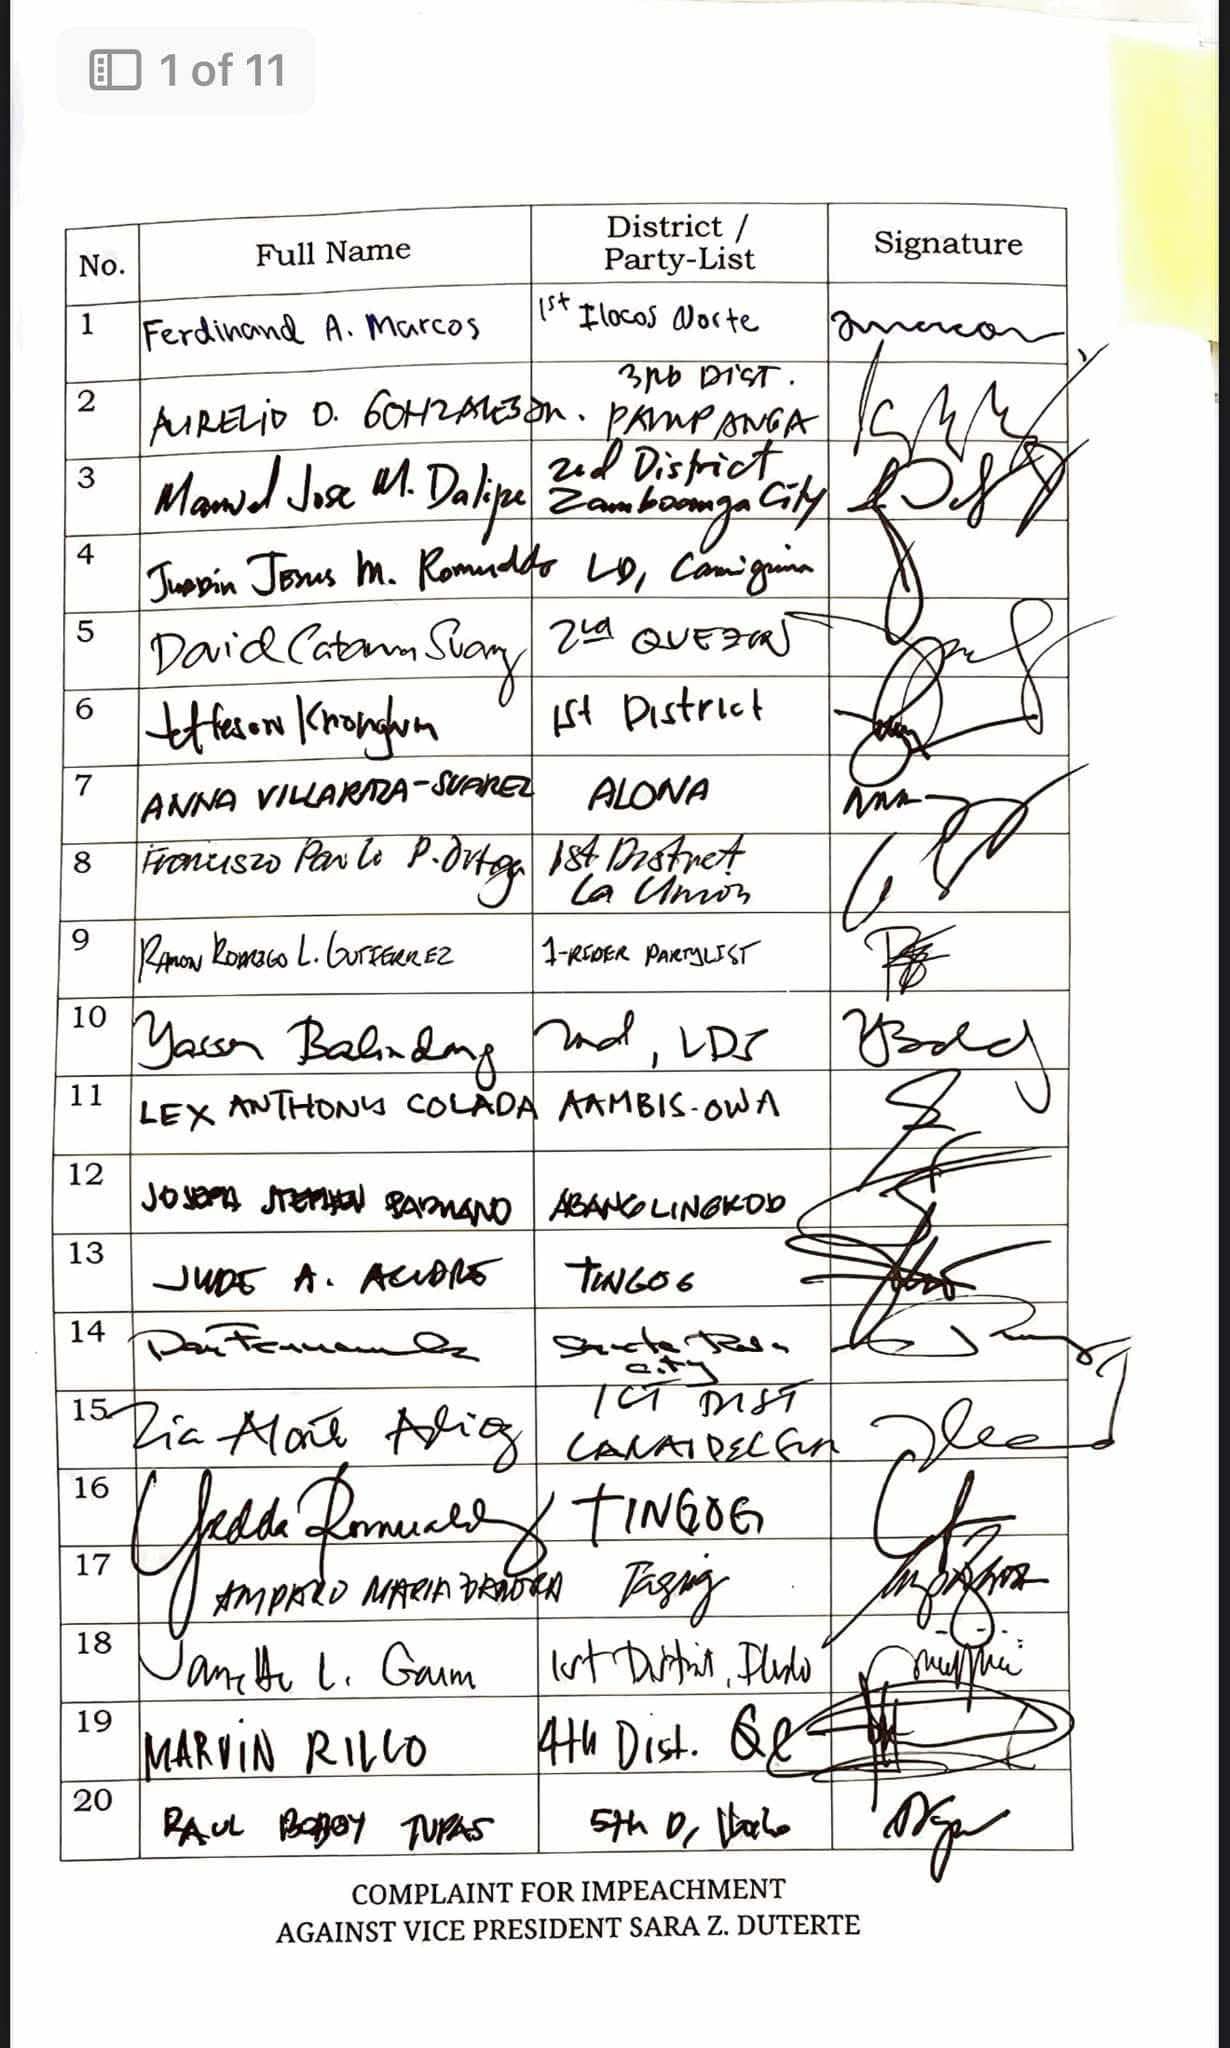 1 of 11
No. Full Name District / Party-List Signature
1 Ferdinand A. Marcos 1st Ilocos Norte
2 AURELIO D. GONZALES JR. 3RD DIST. PAMPANGA
3 Manuel Jose M. Dalipe 2nd District Zamboanga City
4 Jurdin Jesus M. Romualdo LD, Camiguin
5 David Catarina Suarez 2nd QUEZON
6 Jefferson Khonghun 1st District
7 ANNA VILLARAZA-SUAREZ ALONA
8 Francisco Paolo P. Ortega 1st District La Union
9 RAMON RODRIGO L. GUTIERREZ 1-RIDER PARTYLIST
10 Yasser Balindong 2nd, LDS
11 LEX ANTHONY COLADA AAMBIS-OWA
12 JOSEPH STEPHEN PADUANO ABANG LINGKOD
13 JUDE A. ACIDRE TINGOG
14 Dan Fernandez Santa Rosa City
15 Zia Alonto Adiong 1ST DIST LANAO DEL SUR
16 Yedda Romualdez TINGOG
17 AMPARO MARIA ZAMORA Taguig
18 Janette L. Garin 1st District, Iloilo
19 MARVIN RILLO 4th Dist. QC
20 RAUL BOBOY TUPAS 5th D, Iloilo
COMPLAINT FOR IMPEACHMENT
AGAINST VICE PRESIDENT SARA Z. DUTERTE